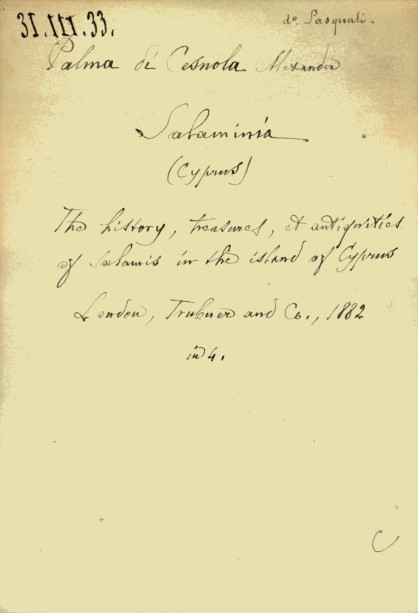 31.III.33.
do. Pasquali.
Palma di Cesnola Alexander
Salaminia
(Cyprus)
The history, treasures, et antiquities
of Salamis in the island of Cyprus
London, Trubner and Co., 1882
in 4.
C